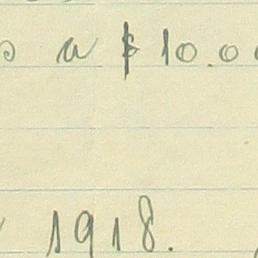 a $ 10.00
1918.